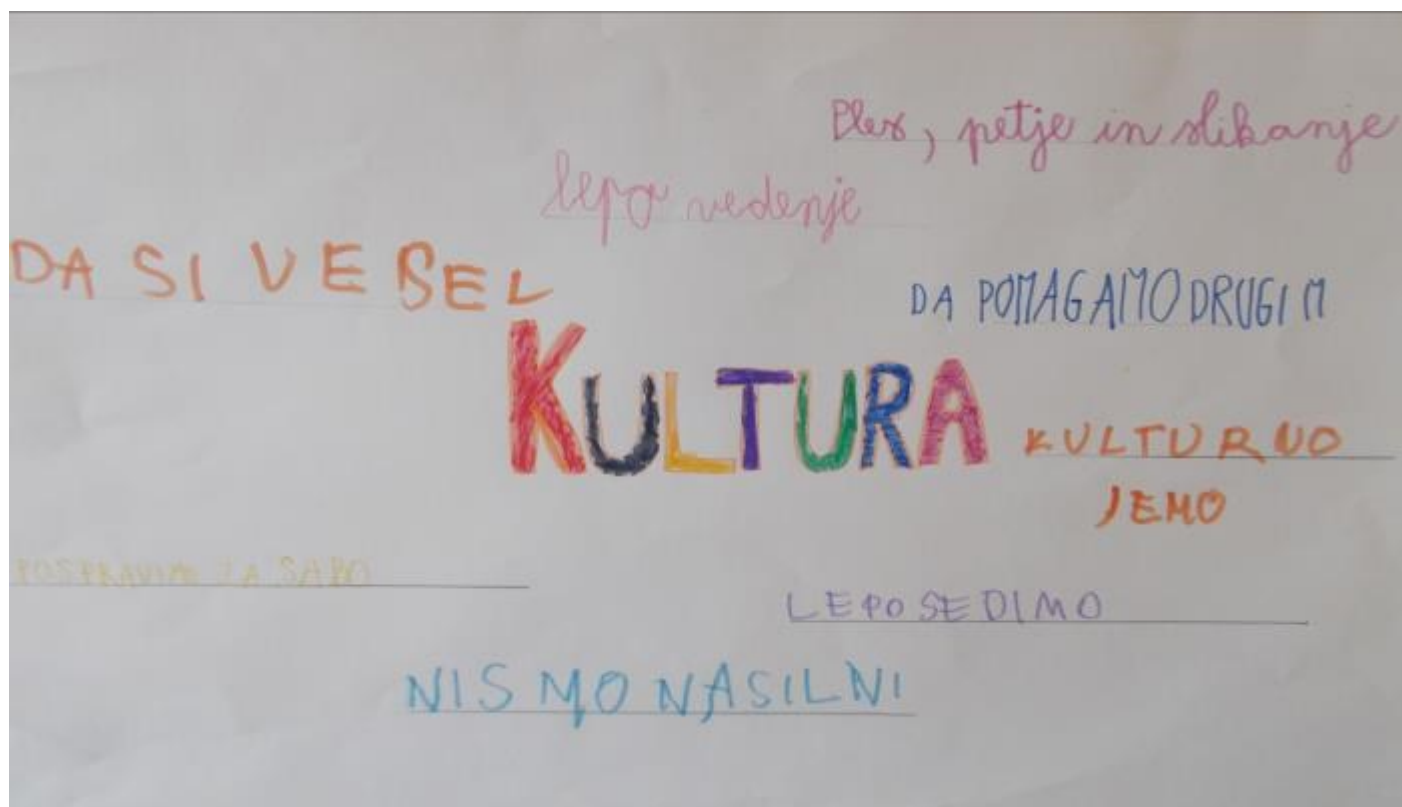 Ples, petje in slikanje
lepo vedenje
DA SI VESEL
DA POMAGAMO DRUGIM
KULTURA
KULTURNO
JEMO
POSPRAVIMO ZA SABO
LEPO SEDIMO
NISMO NASILNI